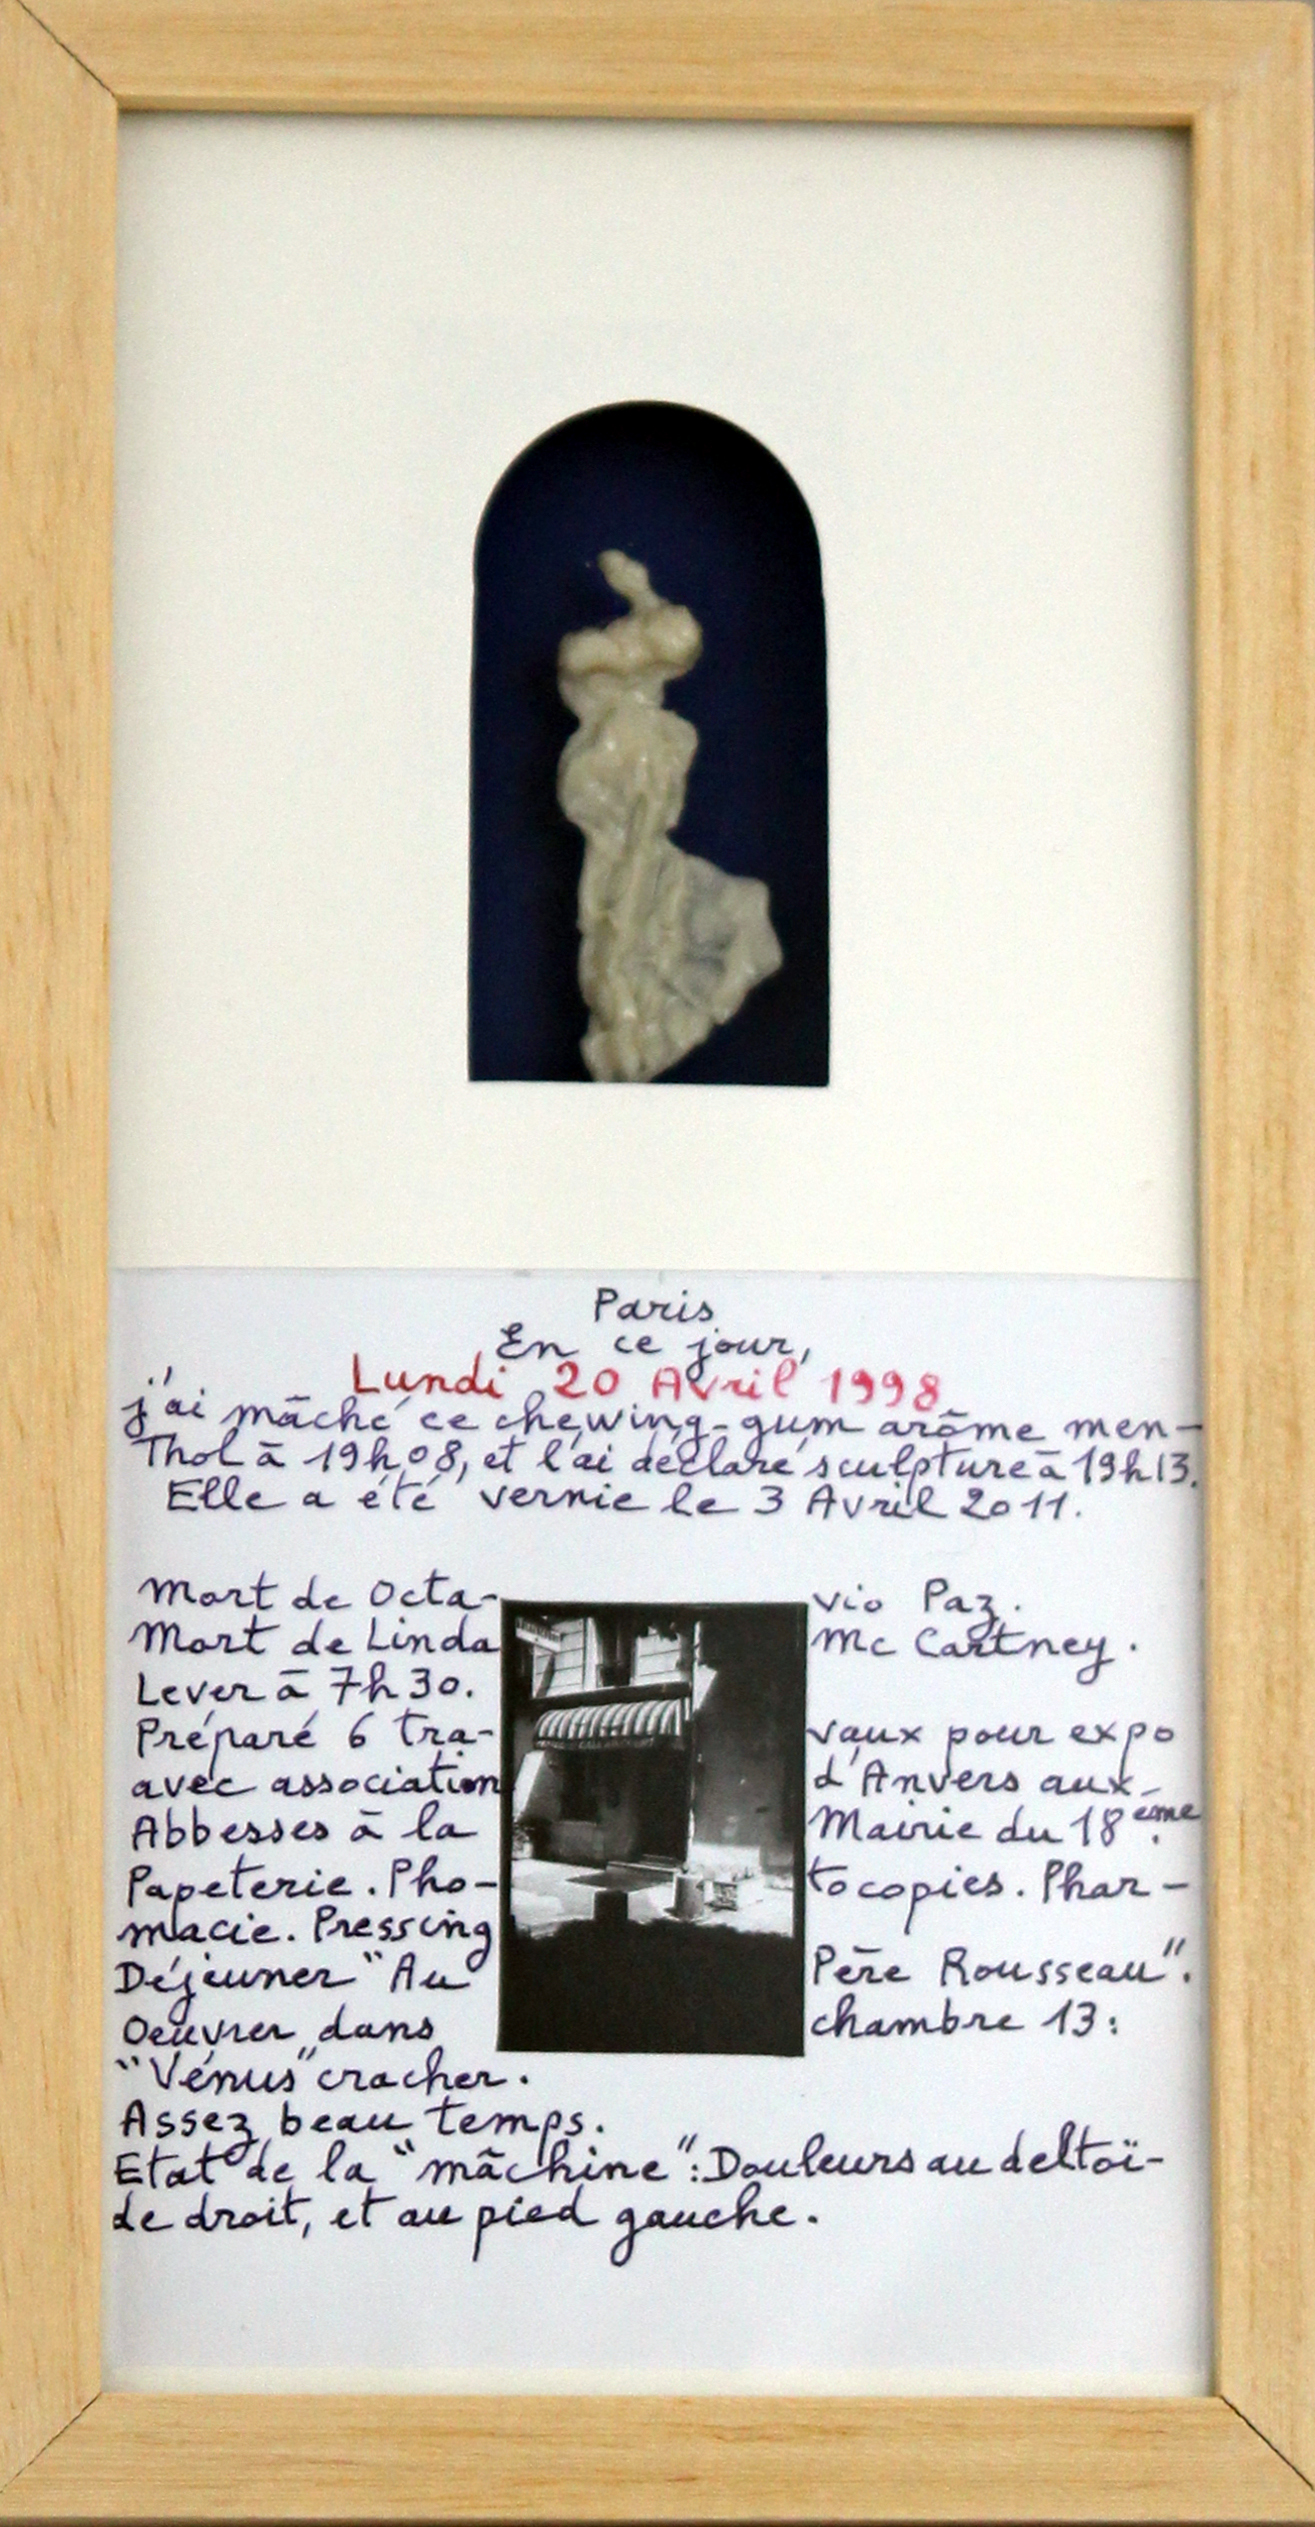 Paris
En ce jour,
Lundi 20 Avril 1998
j'ai mâché ce chewing-gum arôme men-
thol à 19h08, et l'ai déclaré sculpture à 19h13.
Elle a été vernie le 3 Avril 2011.
Mort de Octa- vio Paz.
Mort de Linda Mc Cartney.
Lever à 7h30.
Préparé 6 tra- vaux pour expo
avec association d'Anvers aux-
Abbesses à la Mairie du 18ème.
Papeterie. Pho- tocopies. Phar-
macie. Pressing
Déjeuner "Au Père Rousseau".
Oeuvrer dans chambre 13:
"Vénus" cracher.
Assez beau temps.
Etat de la "mâchine": Douleurs au deltoï-
de droit, et au pied gauche.